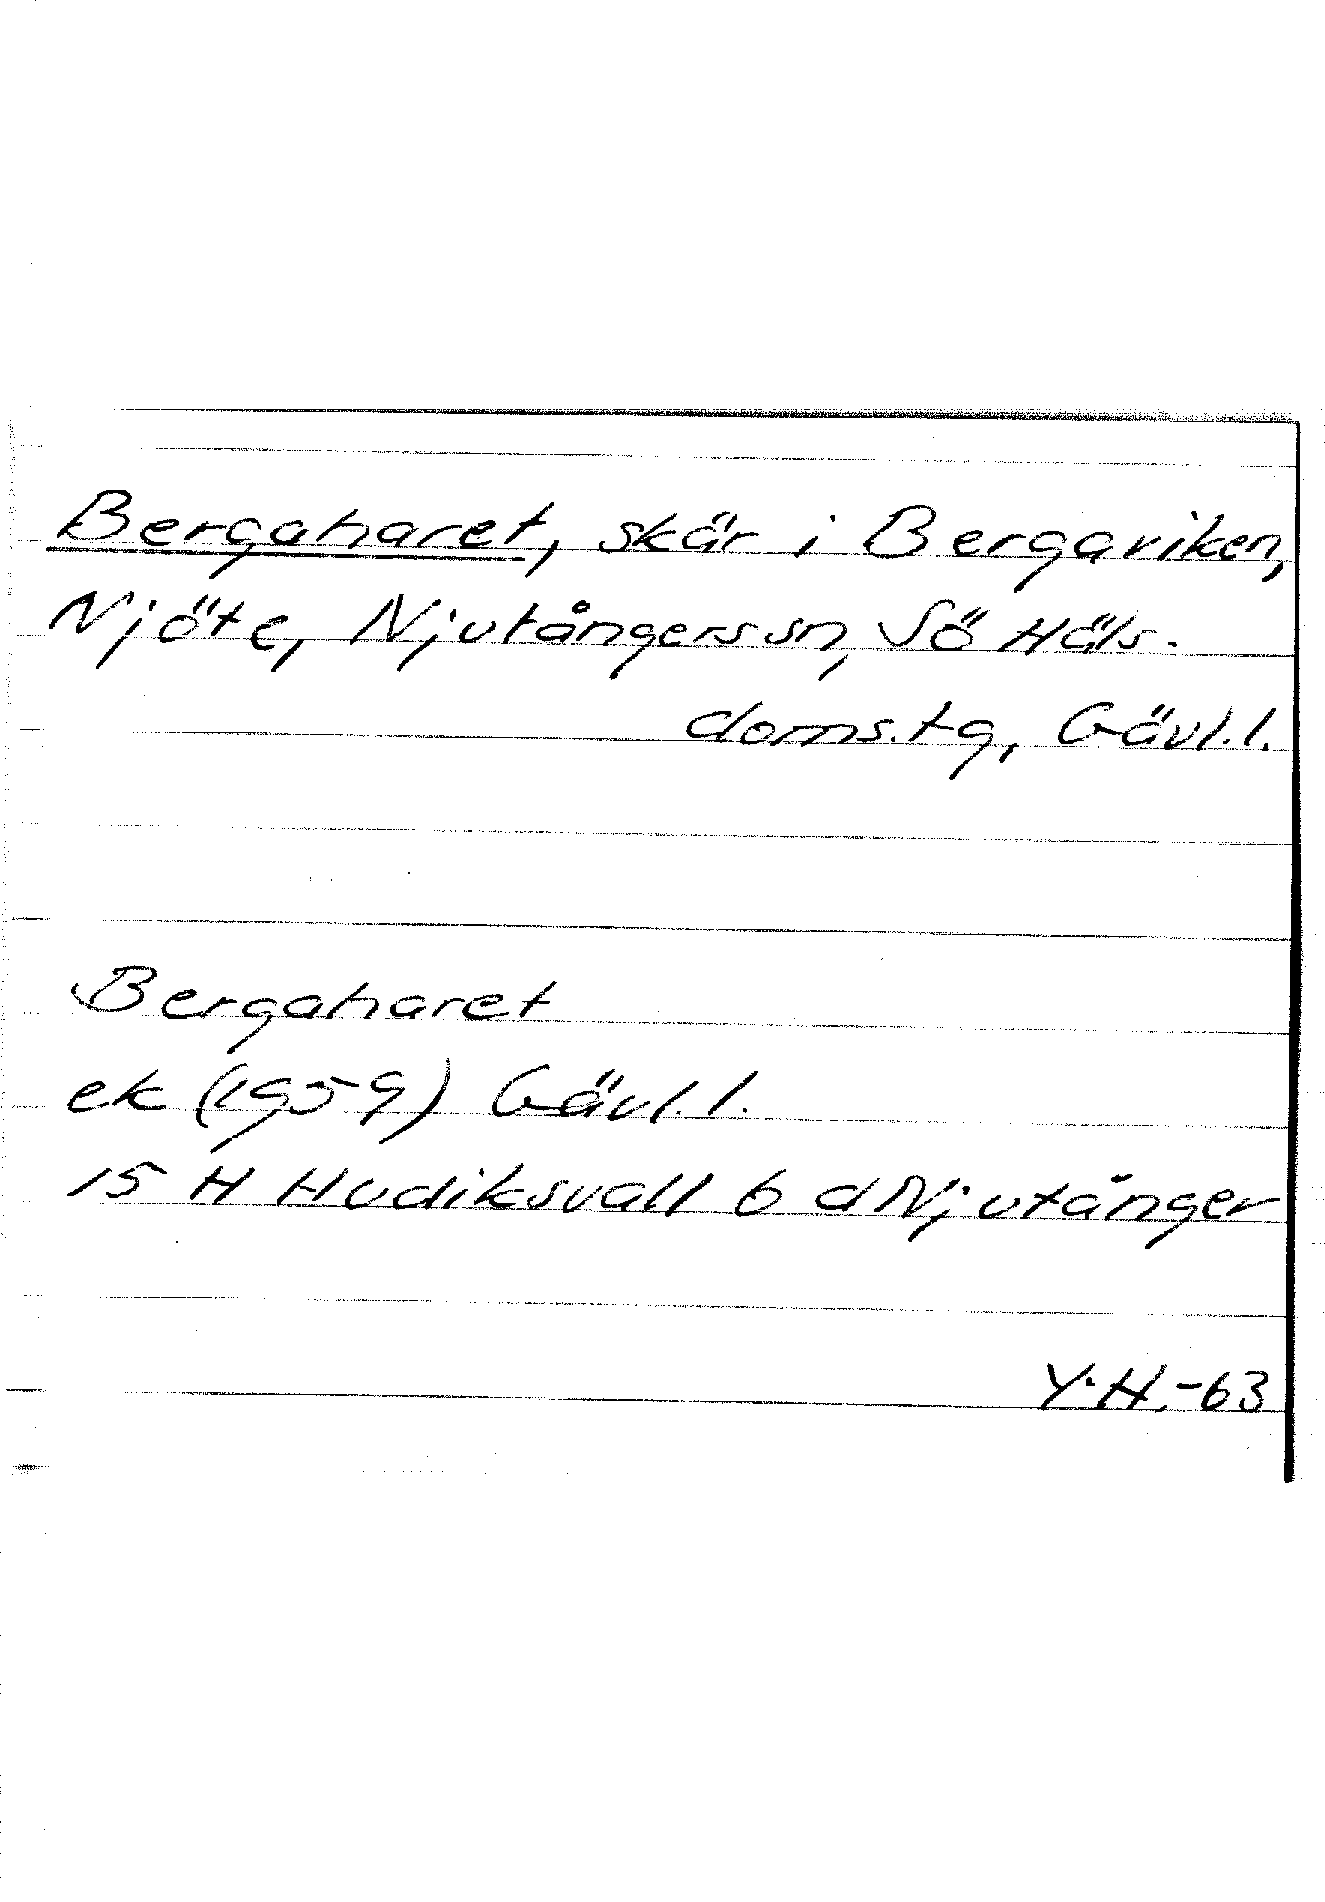 Bergaharet, skär i Bergaviken,
Njöte, Njutångerssn, Sö Häls.
doms.tg, Gävl.l.
Bergaharet
ek (1959) Gävl.l.
15 H Hudiksvall 6 d Njutånger
Y.H.-63